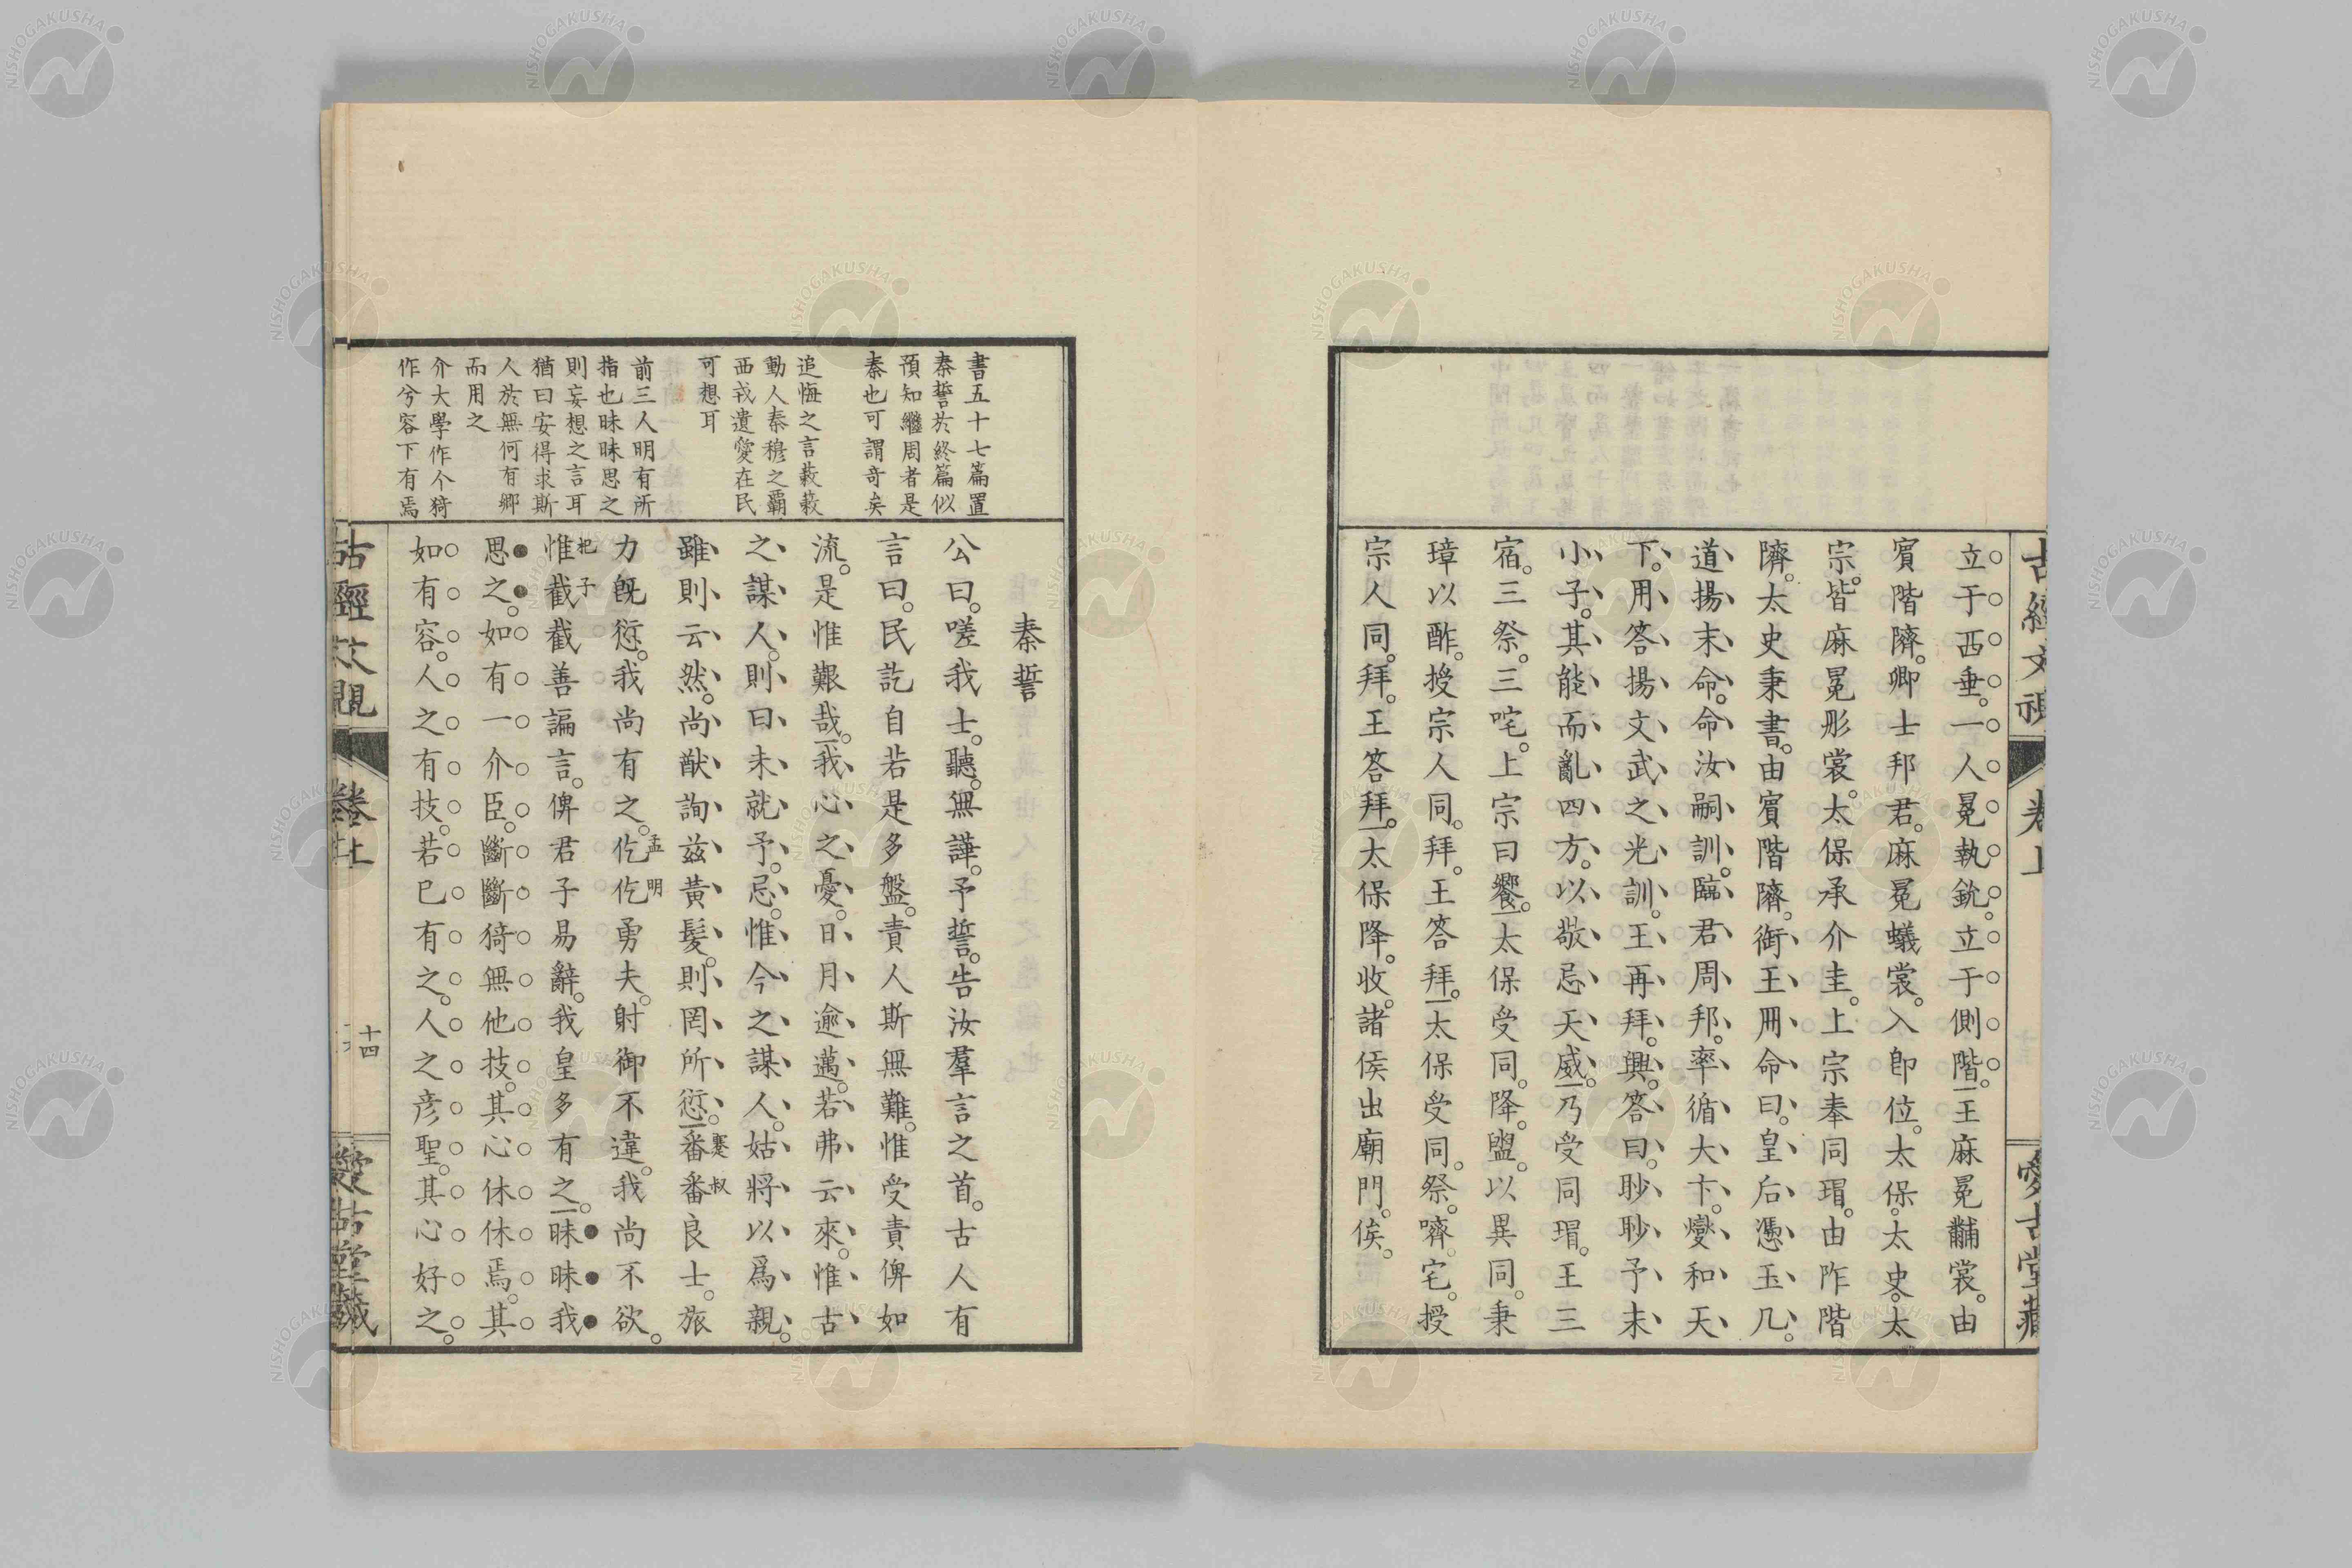 立于西垂。一人冕執銳。立于側階。王麻冕黼裳。由
賓階隮。卿士邦君。麻冕蟻裳。入卽位。太保。太史。太
宗。皆麻冕彤裳。太保承介圭。上宗奉同瑁。由阼階
隮。太史秉書。由賓階隮。御王冊命曰。皇后憑玉几。
道揚末命。命汝嗣訓。臨君周邦。率循大卞。燮和天
下。用答揚文武之光訓。王再拜。興。答曰。眇眇予末
小子。其能而亂四方。以敬忌天威。乃受同瑁。王三
宿。三祭。三咤。上宗曰饗。太保受同。降。盥。以異同。秉
璋以酢。授宗人同。拜。王答拜。太保受同。祭。嚌。宅。授
宗人同。拜。王答拜。太保降。收。諸侯出廟門。俟。
書五十七篇置
秦誓於終篇似
預知繼周者是
秦也可謂奇矣
追悔之言藹藹
動人秦穆之霸
西戎遺愛在民
可想耳
前三人明有所
指也昧昧思之
則妄想之言耳
猶曰安得求斯
人於無何有鄉
而用之
介大學作个猗
作兮容下有焉
秦誓
公曰。嗟我士。聽。無譁。予誓。告汝羣言之首。古人有
言曰。民訖自若是多盤。責人斯無難。惟受責俾如
流。是惟艱哉。我心之憂。日月逾邁。若弗云來。惟古
之謀人。則曰未就予。忌。惟今之謀人。姑將以爲親。
雖則云然。尚猷詢茲黃髮。則罔所愆。番番良士。旅
蹇叔
力既愆。我尚有之。仡仡勇夫。射御不違。我尚不欲。
孟明
惟截截善諞言。俾君子易辭。我皇多有之。昧昧我
杞子
思之。如有一介臣。斷斷猗無他技。其心休休焉。其
如有容。人之有技。若己有之。人之彥聖。其心好之。
十四